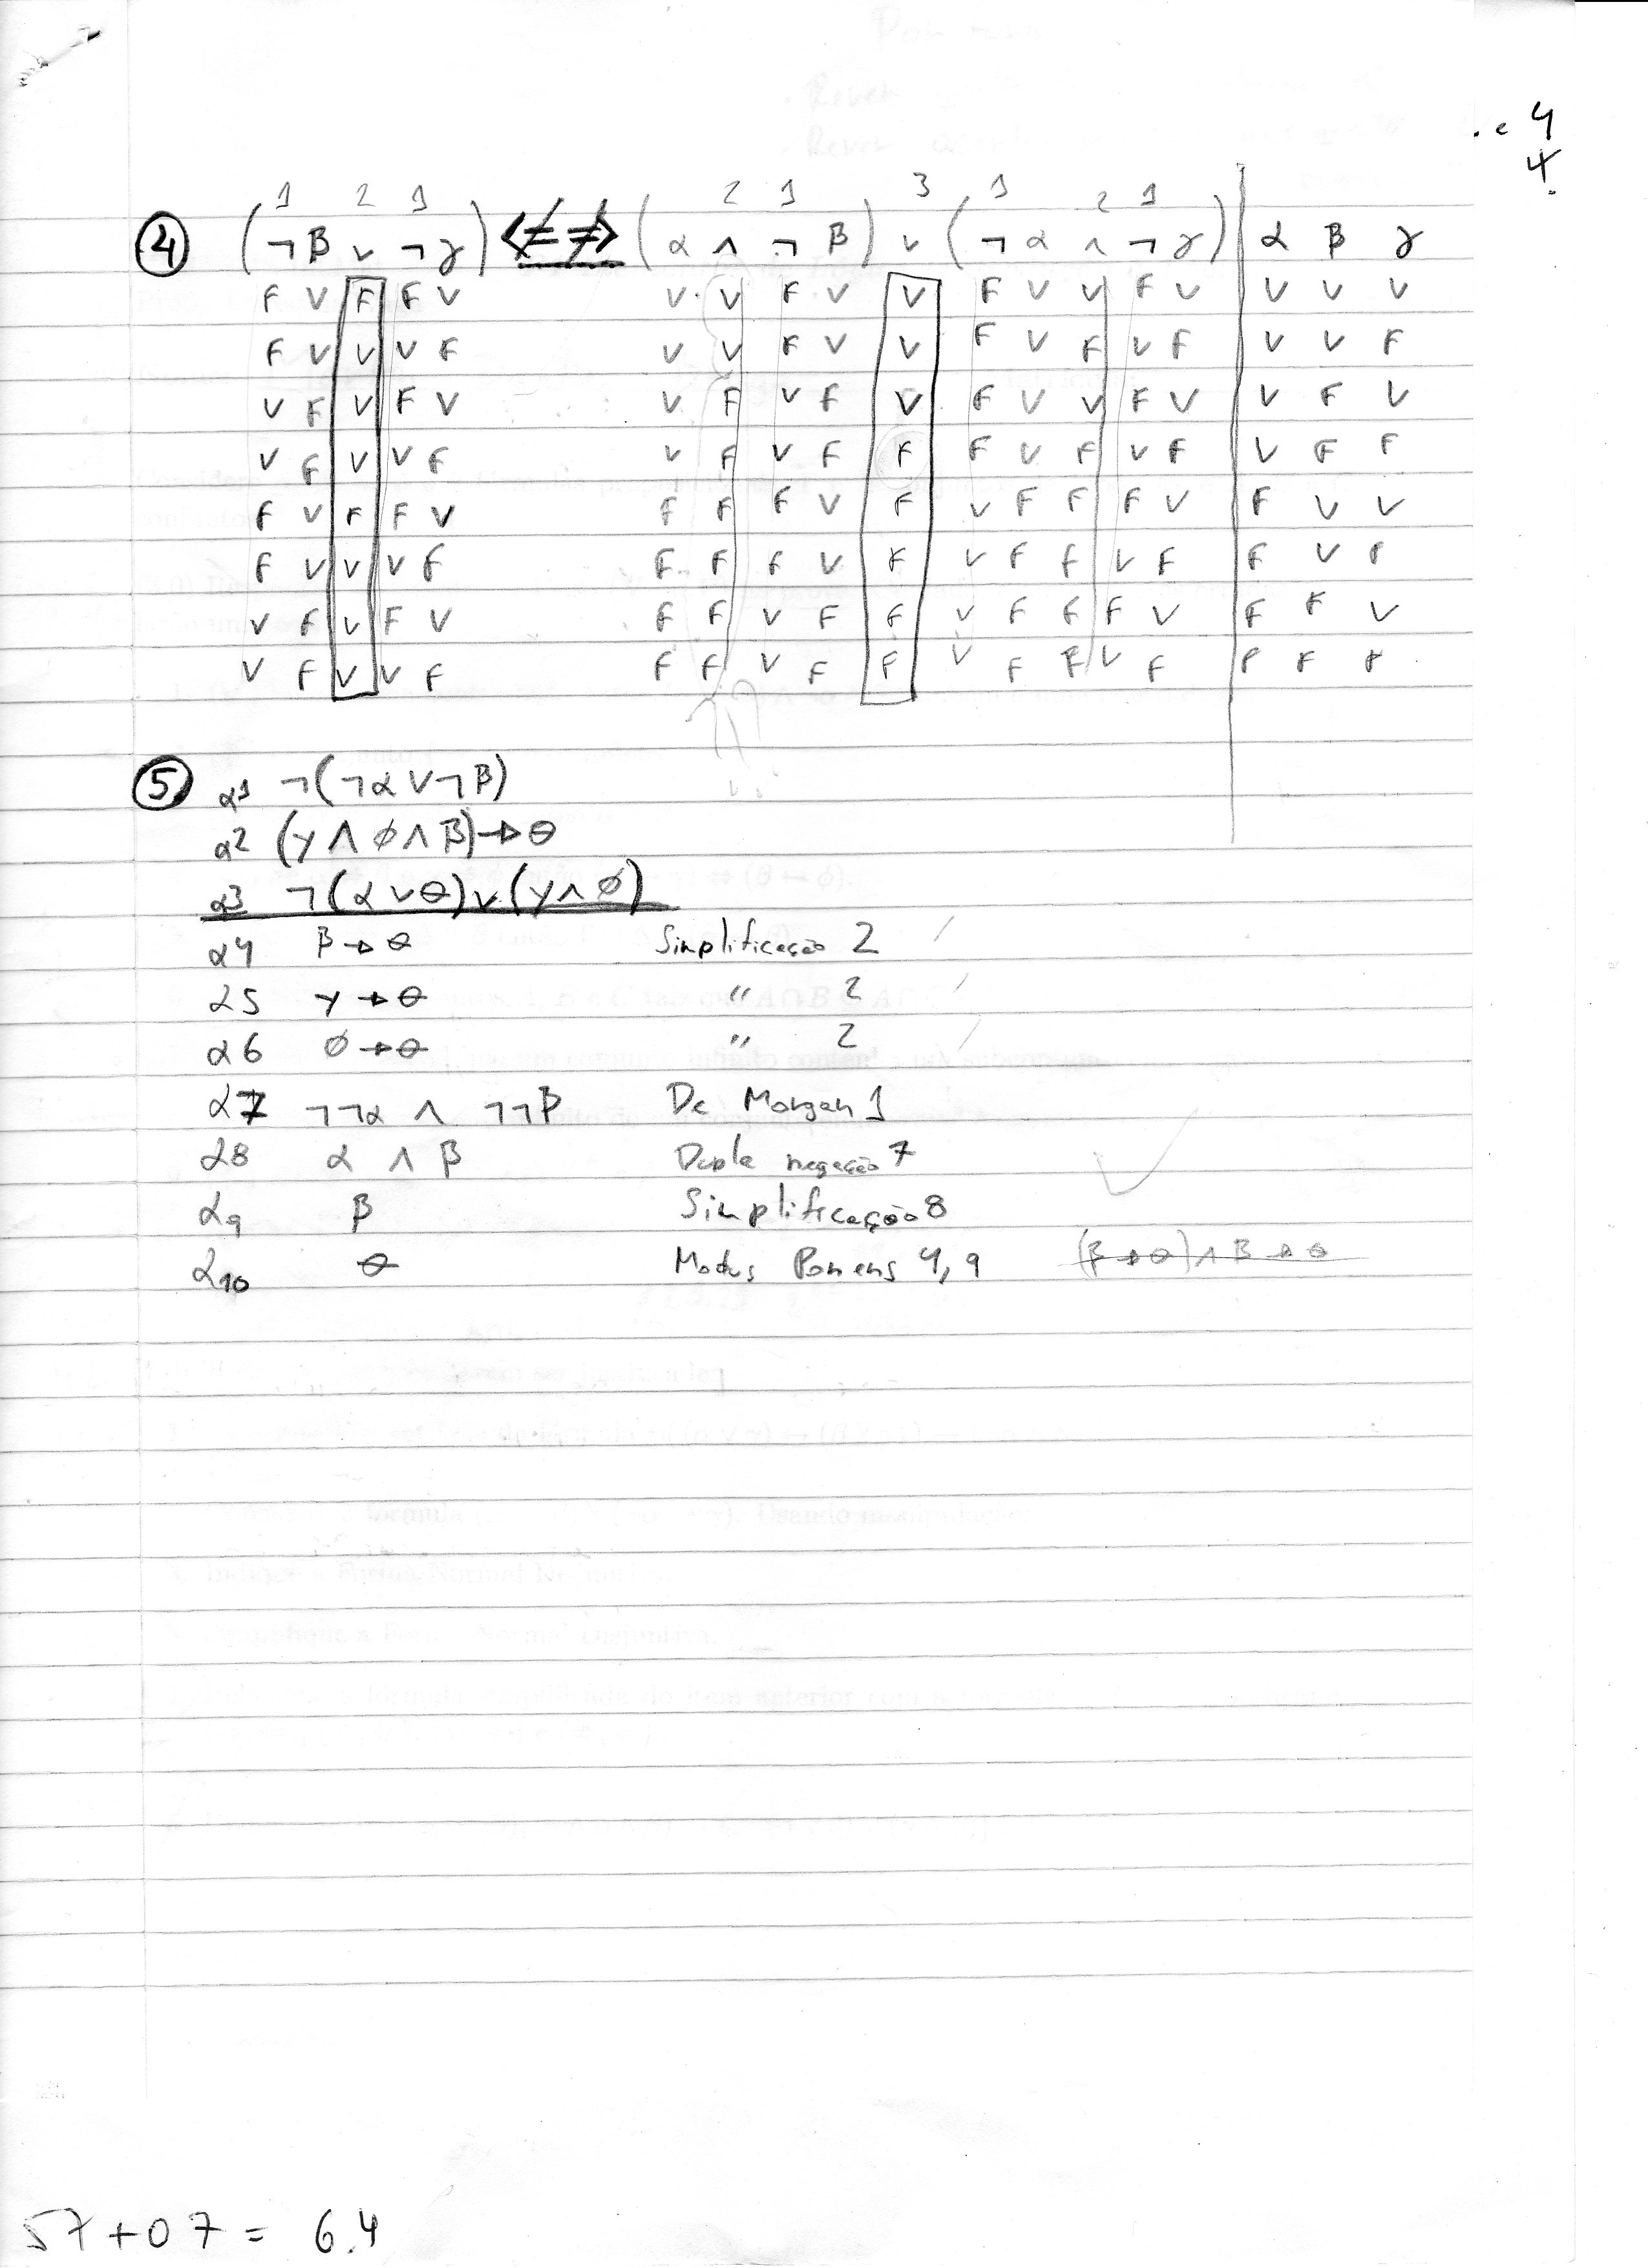 . e 4
4.
1 2 1 2 1 3 1 2 1
④ (¬ β ∨ ¬ γ) <≠≠> (α ∧ ¬ β) ∨ (¬ α ∧ ¬ γ) | α β γ
F V F F V V V F V V F V V F V V V V
F V V V F V V F V V F V F V F V V F
V F V F V V F V F V F V V F V V F V
V F V V F V F V F F F V F V F V F F
F V F F V F F F V F V F F F V F V V
F V V V F F F F V F V F F V F F V F
V F V F V F F V F F V F F F V F F V
V F V V F F F V F F V F F V F F F F
⑤ α1 ¬(¬α ∨ ¬β)
α2 (γ ∧ ∅ ∧ β) → θ
α3 ¬(α ∨ θ) ∨ (γ ∧ ∅)
α4 β → θ Simplificação 2
α5 γ → θ " 2
α6 ∅ → θ " 2
α7 ¬¬α ∧ ¬¬β De Morgan 1
α8 α ∧ β Dupla negação 7
α9 β Simplificação 8
α10 θ Modus Ponens 4, 9 (β → θ) ∧ β → θ
57 + 07 = 6.4